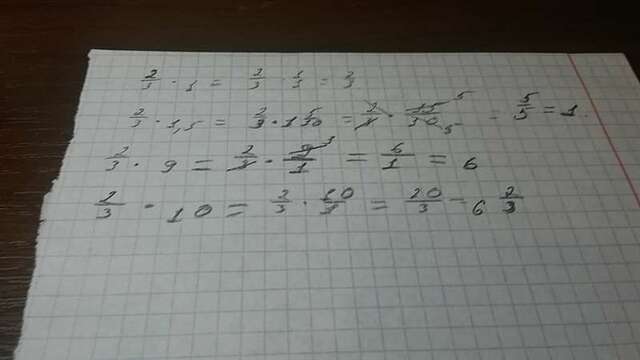 2/3 · 1 = 2/3 · 1/1 = 2/3
2/3 · 1,5 = 2/3 · 1 5/10 = 2/3 · 15/10 = 5/5 = 1.
2/3 · 9 = 2/3 · 9/1 = 6/1 = 6
2/3 · 10 = 2/3 · 10/1 = 20/3 = 6 2/3